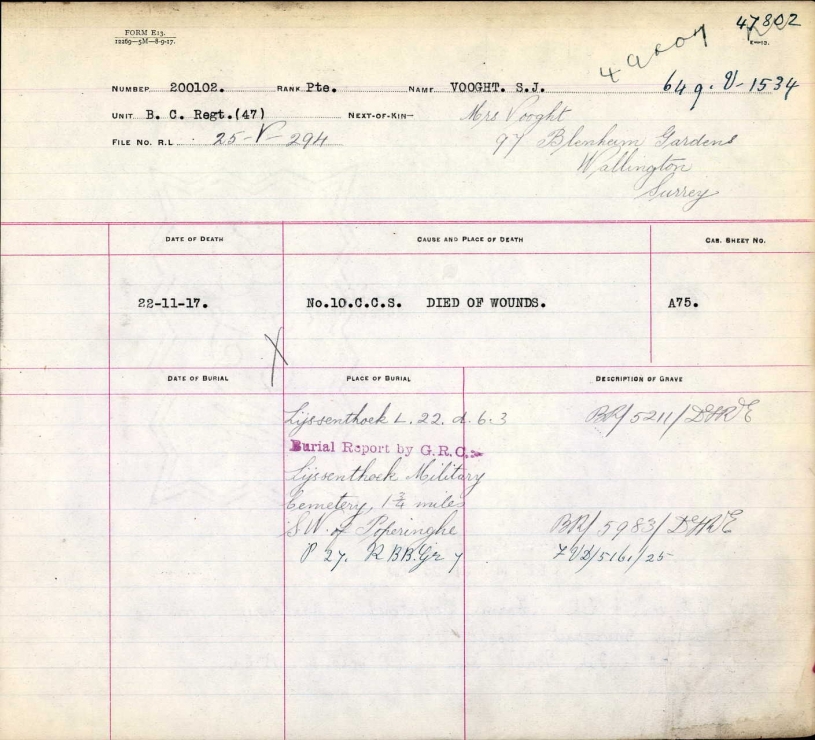 FORM E13.
12269—5M—8-9-17.
47802
E-13.
649-V-1534
NUMBER 200102. RANK Pte. NAME VOOGHT. S.J.
UNIT B. C. Regt.(47) NEXT-OF-KIN— Mrs Vooght
FILE NO. R.L 25-V-294
97 Blenheim Gardens
Wallington
Surrey
DATE OF DEATH CAUSE AND PLACE OF DEATH CAS. SHEET NO.
22-11-17. No.10.C.C.S. DIED OF WOUNDS. A75.
DATE OF BURIAL PLACE OF BURIAL DESCRIPTION OF GRAVE
Lijssenthoek L. 22. d. 6.3 BR/5211/DGRE
Burial Report by G.R.C.
Lijssenthoek Military
Cemetery, 1 3/4 miles
S.W. of Poperinghe BR/5983/DGRE
P 27. R BB. Gr 7